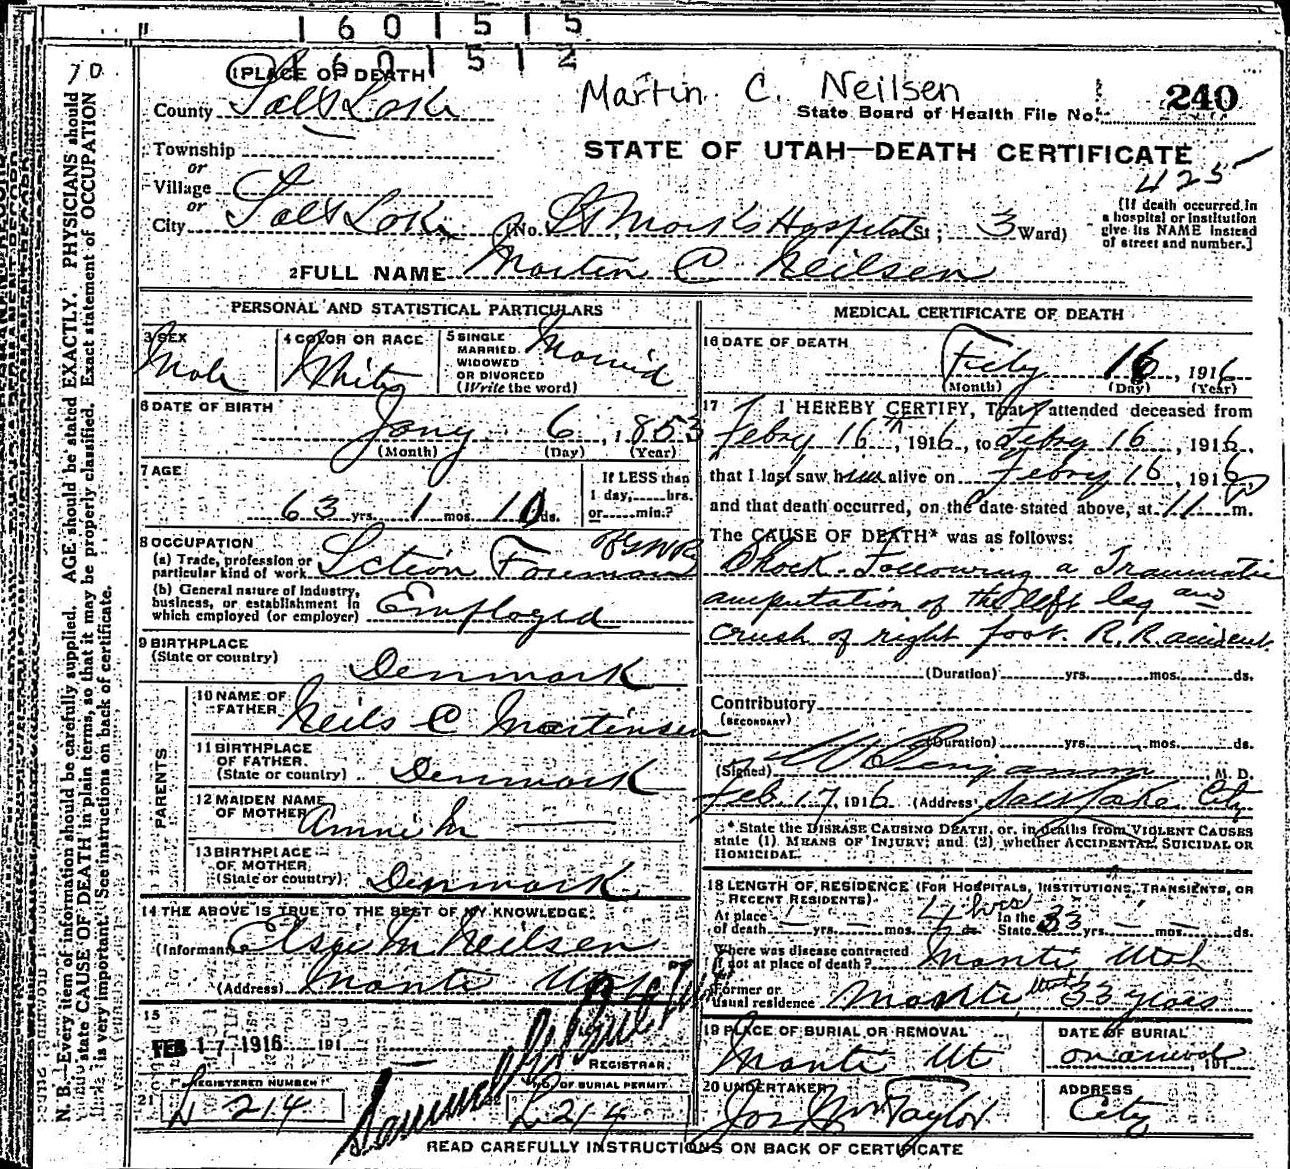 1 6 0 1 5 1 5
1 6 0 1 5 1 2
1 PLACE OF DEATH
Martin C. Neilsen
County Salt Lake
State Board of Health File No. 240
Township
or
STATE OF UTAH—DEATH CERTIFICATE
425
Village
or
City Salt Lake (No. St Mark's Hospital St; 3 Ward)
[If death occurred in
a hospital or institution
give its NAME instead
of street and number.]
2 FULL NAME Martin C Neilsen
PERSONAL AND STATISTICAL PARTICULARS
3 SEX Male
4 COLOR OR RACE White
5 SINGLE
MARRIED
WIDOWED
OR DIVORCED
(Write the word)
Married
6 DATE OF BIRTH
Jany 6, 1853
(Month) (Day) (Year)
7 AGE
63 yrs. 1 mos. 10 ds.
If LESS than
1 day, hrs.
or min.?
8 OCCUPATION
(a) Trade, profession or
particular kind of work Section Foreman
(b) General nature of industry,
business, or establishment in
which employed (or employer) Employed
9 BIRTHPLACE
(State or country)
Denmark
PARENTS
10 NAME OF
FATHER Neils C Martinsen
11 BIRTHPLACE
OF FATHER
(State or country) Denmark
12 MAIDEN NAME
OF MOTHER Annie M
13 BIRTHPLACE
OF MOTHER
(State or country) Denmark
14 THE ABOVE IS TRUE TO THE BEST OF MY KNOWLEDGE.
(Informant) Elsie M Neilsen
(Address) Manti Utah
15
FEB 17 1916 191
REGISTRAR
21 REGISTERED NUMBER
L 214
NO. OF BURIAL PERMIT
L 214
MEDICAL CERTIFICATE OF DEATH
16 DATE OF DEATH
Feby 16, 1916
(Month) (Day) (Year)
17 I HEREBY CERTIFY, That I attended deceased from
Febry 16th, 1916, to Febry 16, 1916,
that I last saw him alive on Febry 16, 1916,
and that death occurred, on the date stated above, at 11 P m.
The CAUSE OF DEATH* was as follows:
Shock. Following a Traumatic
amputation of the left leg and
crush of right foot. R.R. accident
(Duration) yrs. mos. ds.
Contributory
(SECONDARY)
(Duration) yrs. mos. ds.
(Signed) Benjamin, M. D.
Feb. 17, 1916 (Address) Salt Lake City
* State the DISEASE CAUSING DEATH, or, in deaths from VIOLENT CAUSES
state (1) MEANS OF INJURY; and (2) whether ACCIDENTAL, SUICIDAL OR
HOMICIDAL.
18 LENGTH OF RESIDENCE (FOR HOSPITALS, INSTITUTIONS, TRANSIENTS, OR
RECENT RESIDENTS)
At place
of death yrs. mos. 4 hrs ds. In the
State 33 yrs. mos. ds.
Where was disease contracted
if not at place of death? Manti Utah
Former or
usual residence Manti Utah 33 years
19 PLACE OF BURIAL OR REMOVAL
Manti Ut
DATE OF BURIAL
on arrival, 191
20 UNDERTAKER
Jos Wm Taylor
ADDRESS
City
READ CAREFULLY INSTRUCTIONS ON BACK OF CERTIFICATE
N. B.—Every item of information should be carefully supplied. AGE should be stated EXACTLY. PHYSICIANS should
state CAUSE OF DEATH in plain terms, so that it may be properly classified. Exact statement of OCCUPATION
is very important. See instructions on back of certificate.